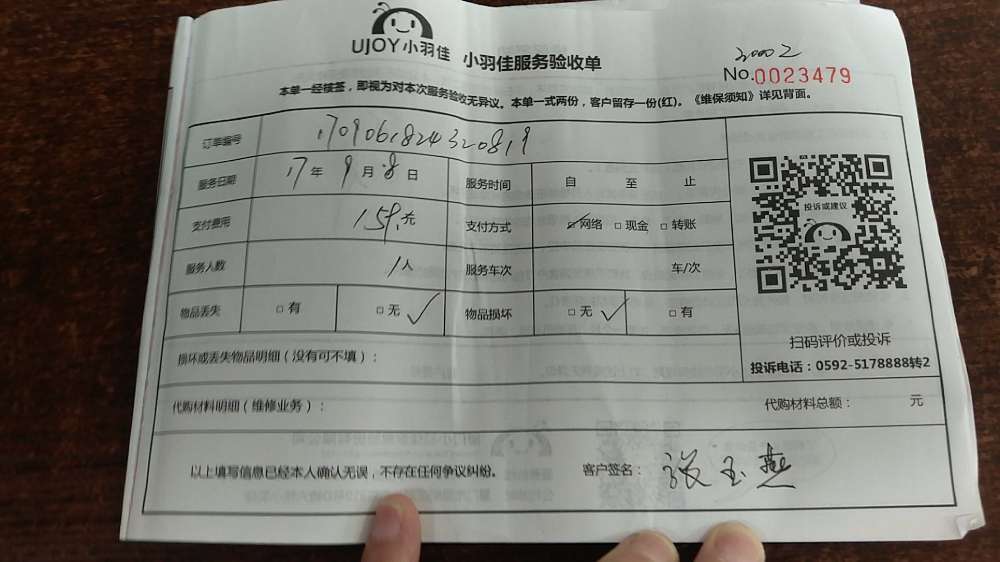 UJOY小羽佳 小羽佳服务验收单
30002
No.0023479
本单一经核签，即视为对本次服务验收无异议。本单一式两份，客户留存一份(红)。《维保须知》详见背面。
订单编号 1709061824320819
服务日期 17年9月8日 服务时间 自 至 止
投诉或建议
支付费用 159.元 支付方式 ☑网络 □现金 □转账
服务人数 1人 服务车次 车/次
物品丢失 □有 □无✓ 物品损坏 □无✓ □有
扫码评价或投诉
损坏或丢失物品明细（没有可不填）：
投诉电话：0592-5178888转2
代购材料明细（维修业务）： 代购材料总额： 元
以上填写信息已经本人确认无误，不存在任何争议纠纷。 客户签名：张玉燕